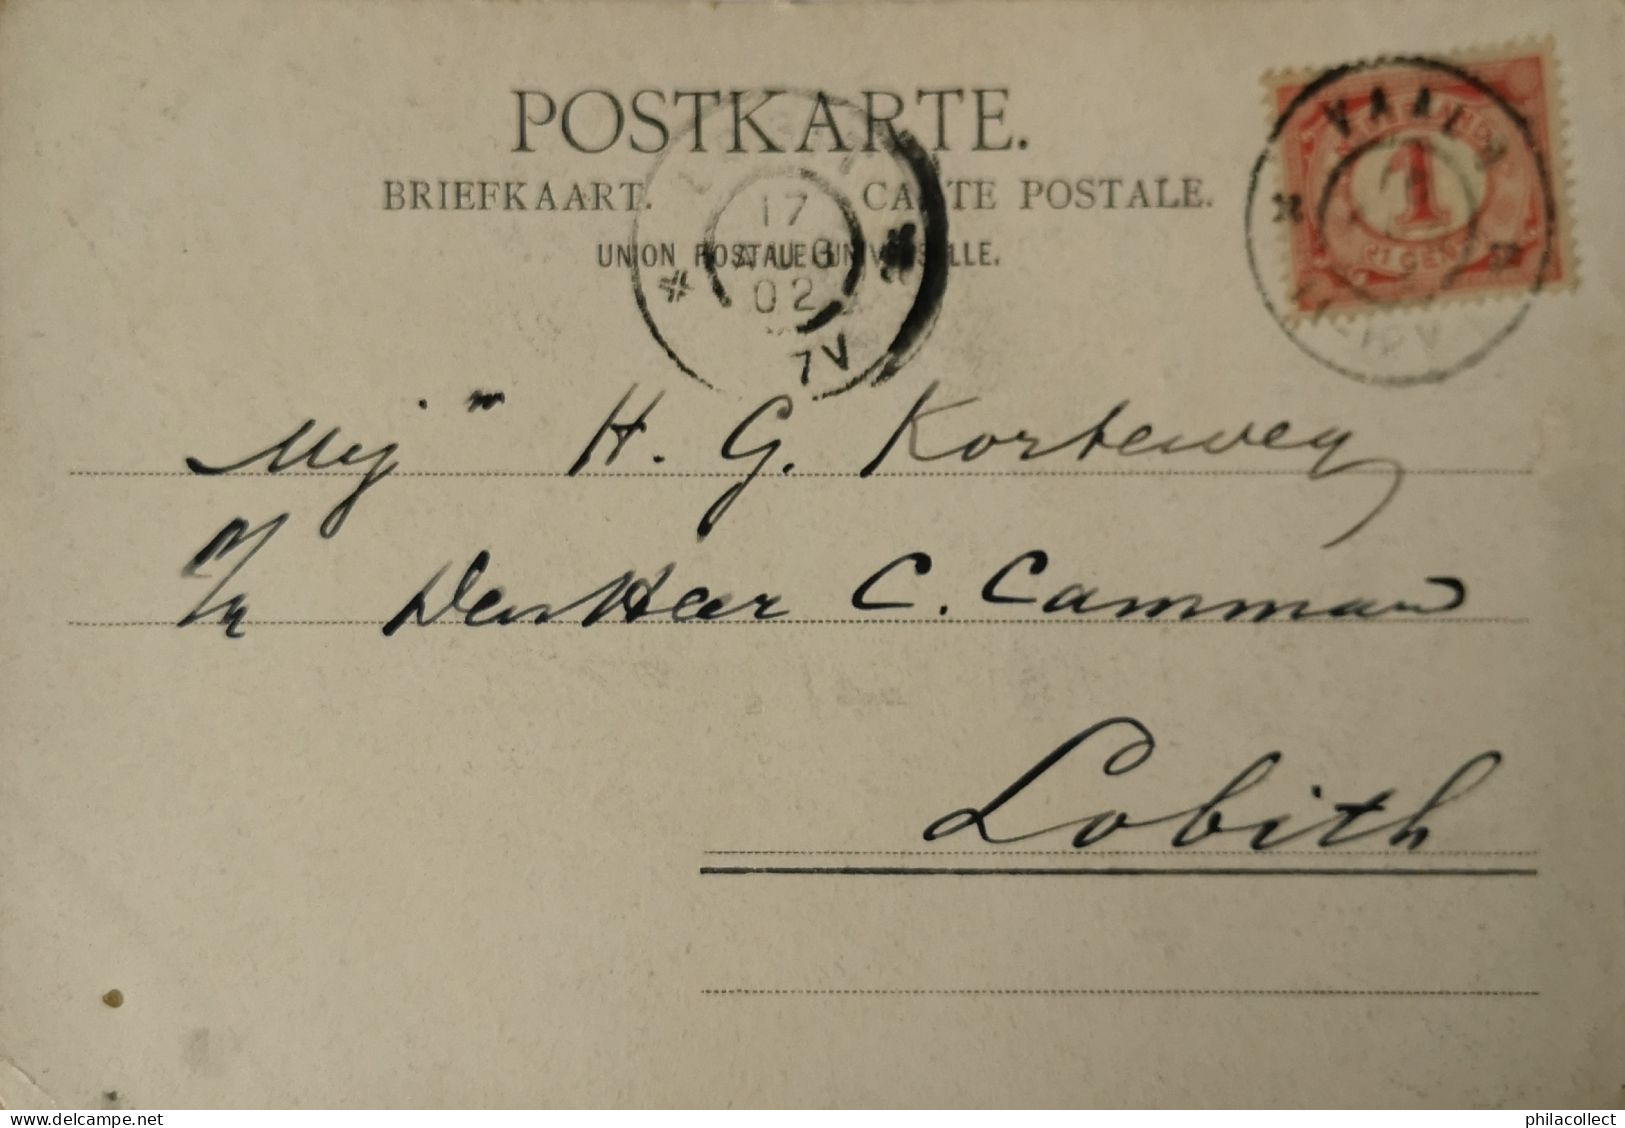 POSTKARTE.
BRIEFKAART. CARTE POSTALE.
UNION POSTALE UNIVERSELLE.
17
AUG
02
7V
VAALS
1
Mejn H. G. Korteweg
p/a Den Heer C. Camman
Lobith
philacollect